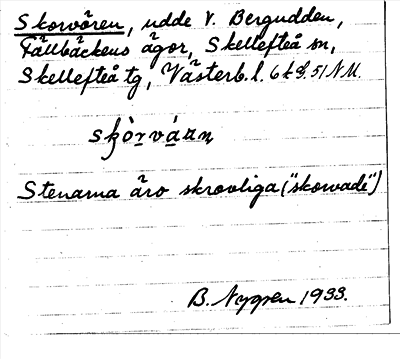 Skorvören, udde V. Bergudden,
Fällbäckens ägor, Skellefteå sn,
Skellefteå tg, Västerb. l.
skò̱rvá̱ɑn̥
Stenarna äro skrovliga ("skorvade")
B. Nygren 1933.